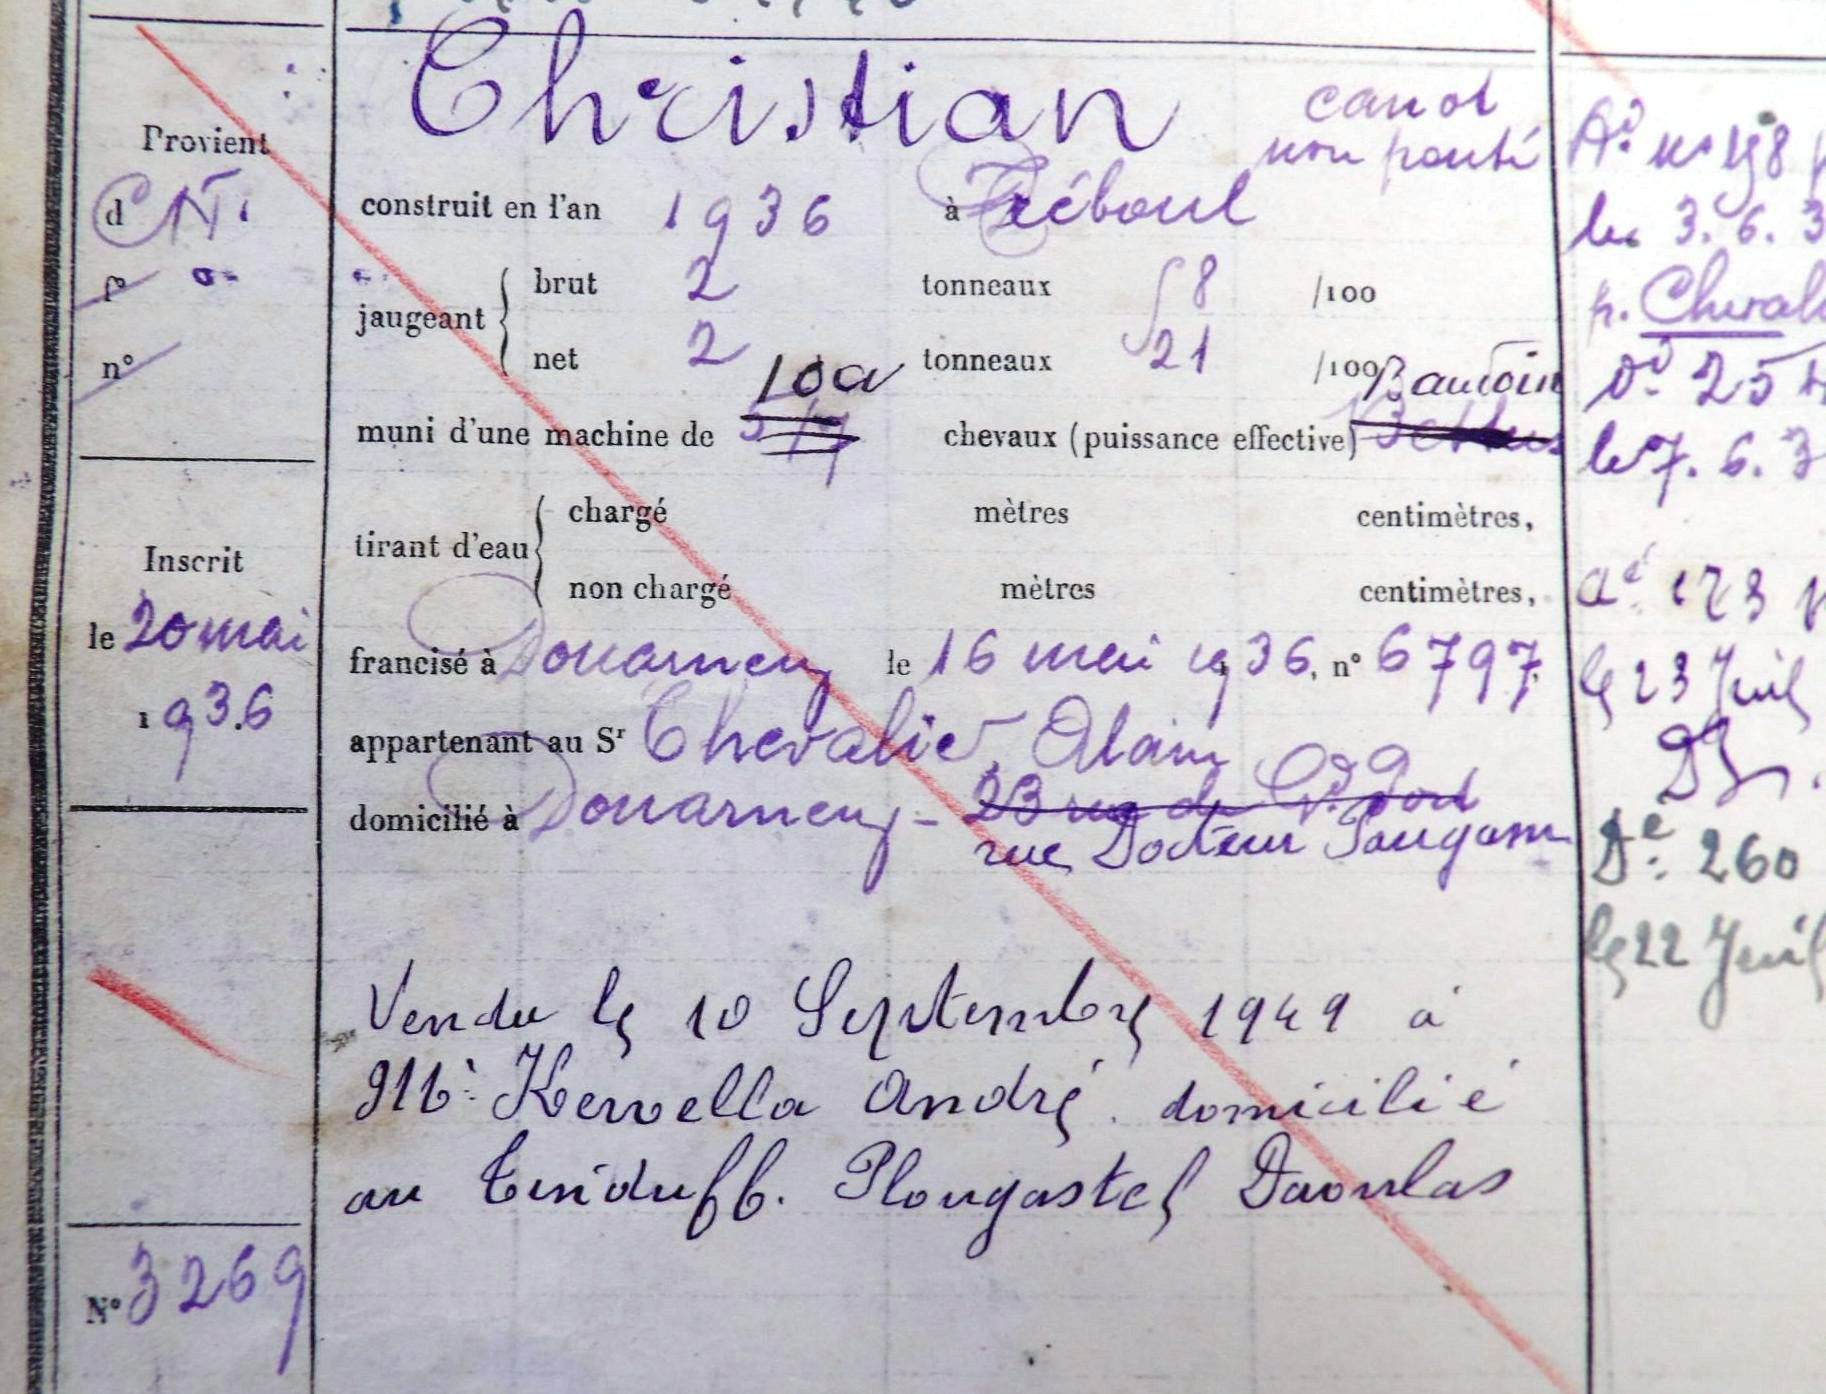 Christian
canot
non ponté
Provient
d CN.
f°
n°
construit en l'an 1936 à Tréboul
jaugeant brut 2 tonneaux 58 /100
net 2 tonneaux 21 /100
10 cv Baudoin
muni d'une machine de 5/7 chevaux (puissance effective)
tirant d'eau chargé mètres centimètres,
non chargé mètres centimètres,
Inscrit
le 20 mai
1936
francisé à Douarnenez le 16 mai 1936, n° 6797,
appartenant au Sr Chevalier Alain
domicilié à Douarnenez - 23 rue du Gd Port
rue Docteur
Vendu le 10 Septembre 1949 à
Mr Kervella André. domicilié
au Tinduff. Plougastel Daoulas
N° 3269
Aé n° 198
le 3.6.3
p. Cheval
Dé 254
le 7.6.3
Aé 173
le 23 Juil
Dé 260
le 22 Juil